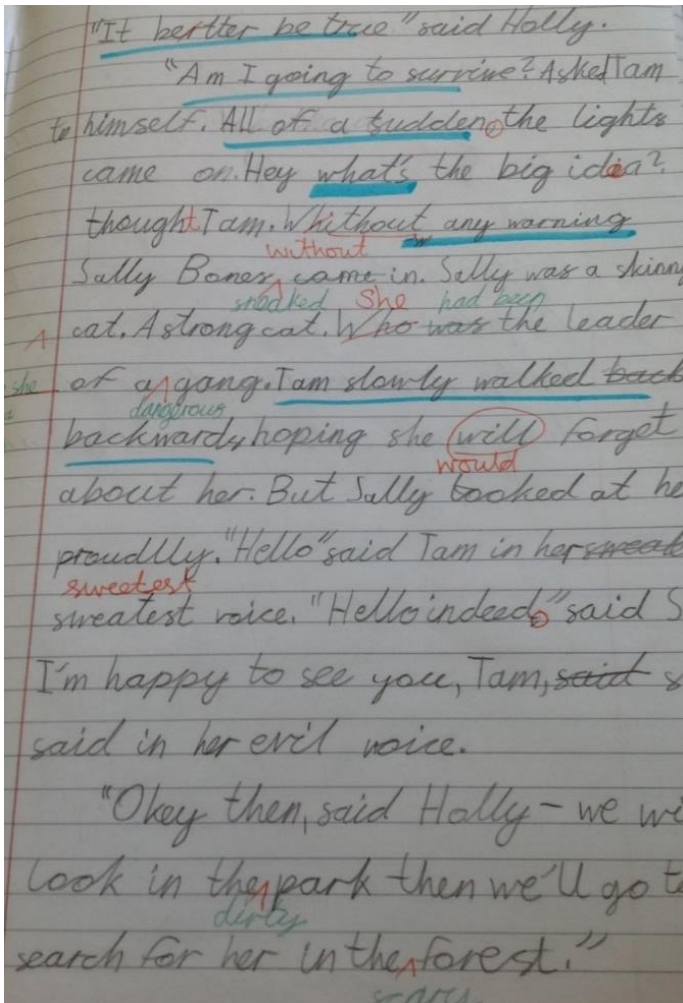 "It bertter be true" said Holly.
"Am I going to survive? Asked Tam
to himself. All of a sudden, the lights
came on. Hey what's the big idea?
thought Tam. Whithout any warning
without
Sally Bones came in. Sally was a skinny
sneaked She had been
cat. A strong cat. Who was the leader
she of a gang. Tam slowly walked back
dangerous
backwards, hoping she will forget
would
about her. But Sally looked at he
proudlly. "Hello" said Tam in her sweat
sweetest
sweatest voice. "Hello indeed," said S
I'm happy to see you, Tam, said s
said in her evil voice.
"Okey then, said Holly - we wi
look in the park then we'll go t
dirty
search for her in the forest."
scary